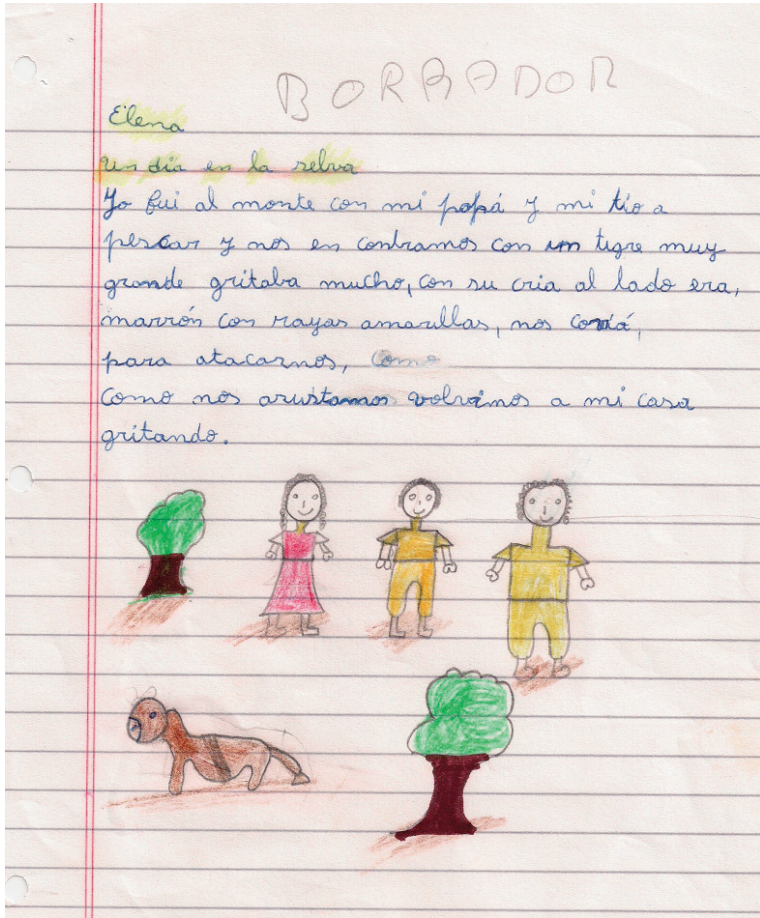 BORRADOR
Elena
Un día en la selva
Yo fui al monte con mi papá y mi tio a
pescar y nos en contramos con un tigre muy
grande gritaba mucho, con su cria al lado era,
marrón con rayas amarillas, nos corriá,
para atacarnos, como
Como nos asustamos volvimos a mi casa
gritando.